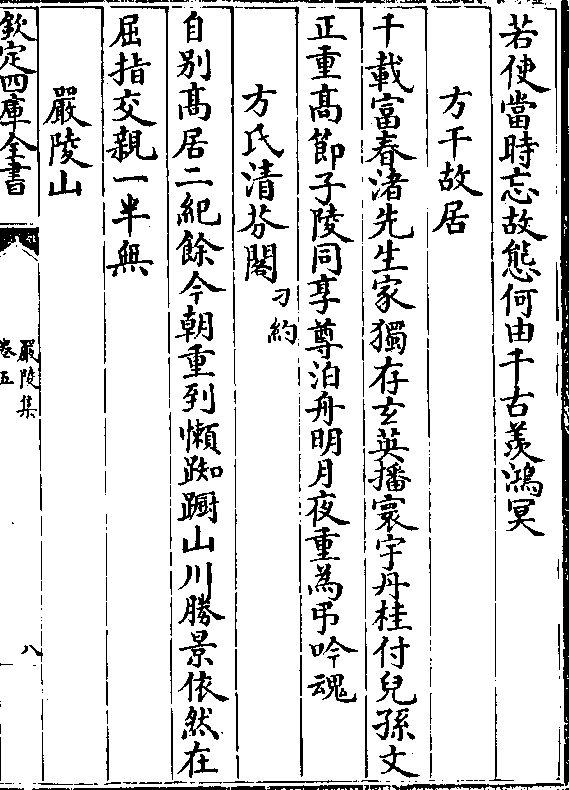 若使當時忘故態何由千古羡鴻冥
方干故居
千載富春渚先生家獨存玄英播寰宇丹桂付兒孫文
正重髙節子陵同享尊泊舟明月夜重為弔吟魂
方氏清芬閣
刁約
自别髙居二紀餘今朝重到懶踟蹰山川勝景依然在
屈指交親一半無
嚴陵山
欽定四庫全書
嚴陵集
卷五
八